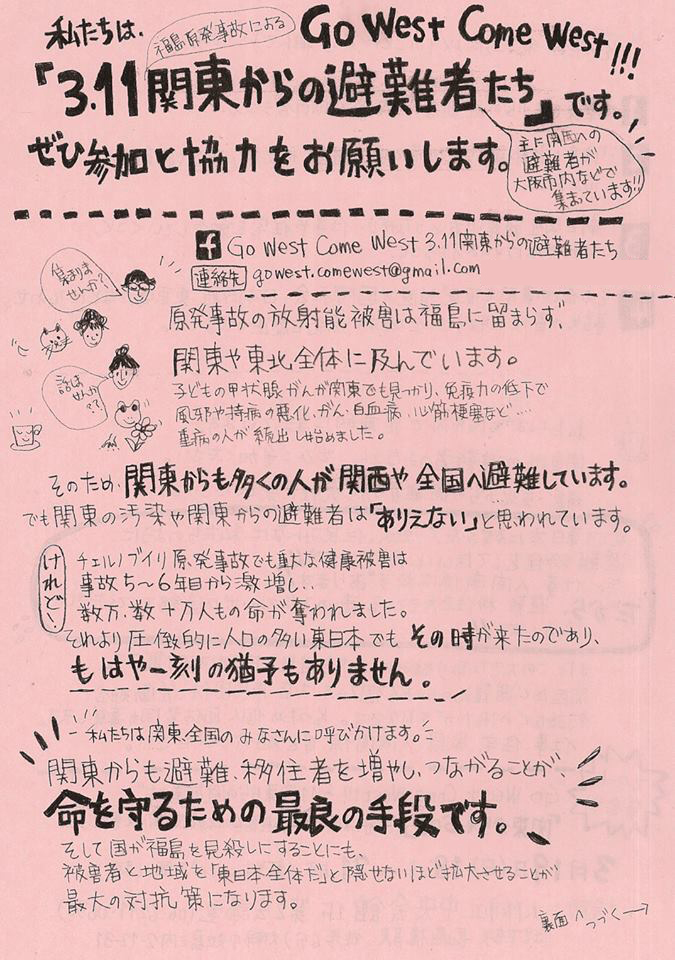 私たちは、
福島原発事故による
Go West Come West!!!
「3.11関東からの避難者たち」です。
ぜひ参加と協力をお願いします。
主に関西への
避難者が
大阪市内などで
集まっています!!
f Go West Come West 3.11関東からの避難者たち
連絡先 gowest.comewest@gmail.com
集まりま
せんか?
話しま
せんか
??
原発事故の放射能被害は福島に留まらず、
関東や東北全体に及んでいます。
子どもの甲状腺がんが関東でも見つかり、免疫力の低下で
風邪や持病の悪化、がん、白血病、心筋梗塞など…
重病の人が続出し始めました。
そのため、関東からも多くの人が関西や全国へ避難しています。
でも関東の汚染や関東からの避難者は「ありえない」と思われています。
けれど!
チェルノブイリ原発事故でも重大な健康被害は
事故5〜6年目から激増し‥
数万、数十万人もの命が奪われました。
それより圧倒的に人口の多い東日本でもその時が来たのであり、
もはや一刻の猶予もありません。
私たちは関東、全国のみなさんに呼びかけます。
関東からも避難、移住者を増やし、つながることが、
命を守るための最良の手段です。
そして国が福島を見殺しにすることにも、
被害者と地域を「東日本全体だ」と隠せないほど拡大させることが
最大の対抗策になります。
裏面へつづく→